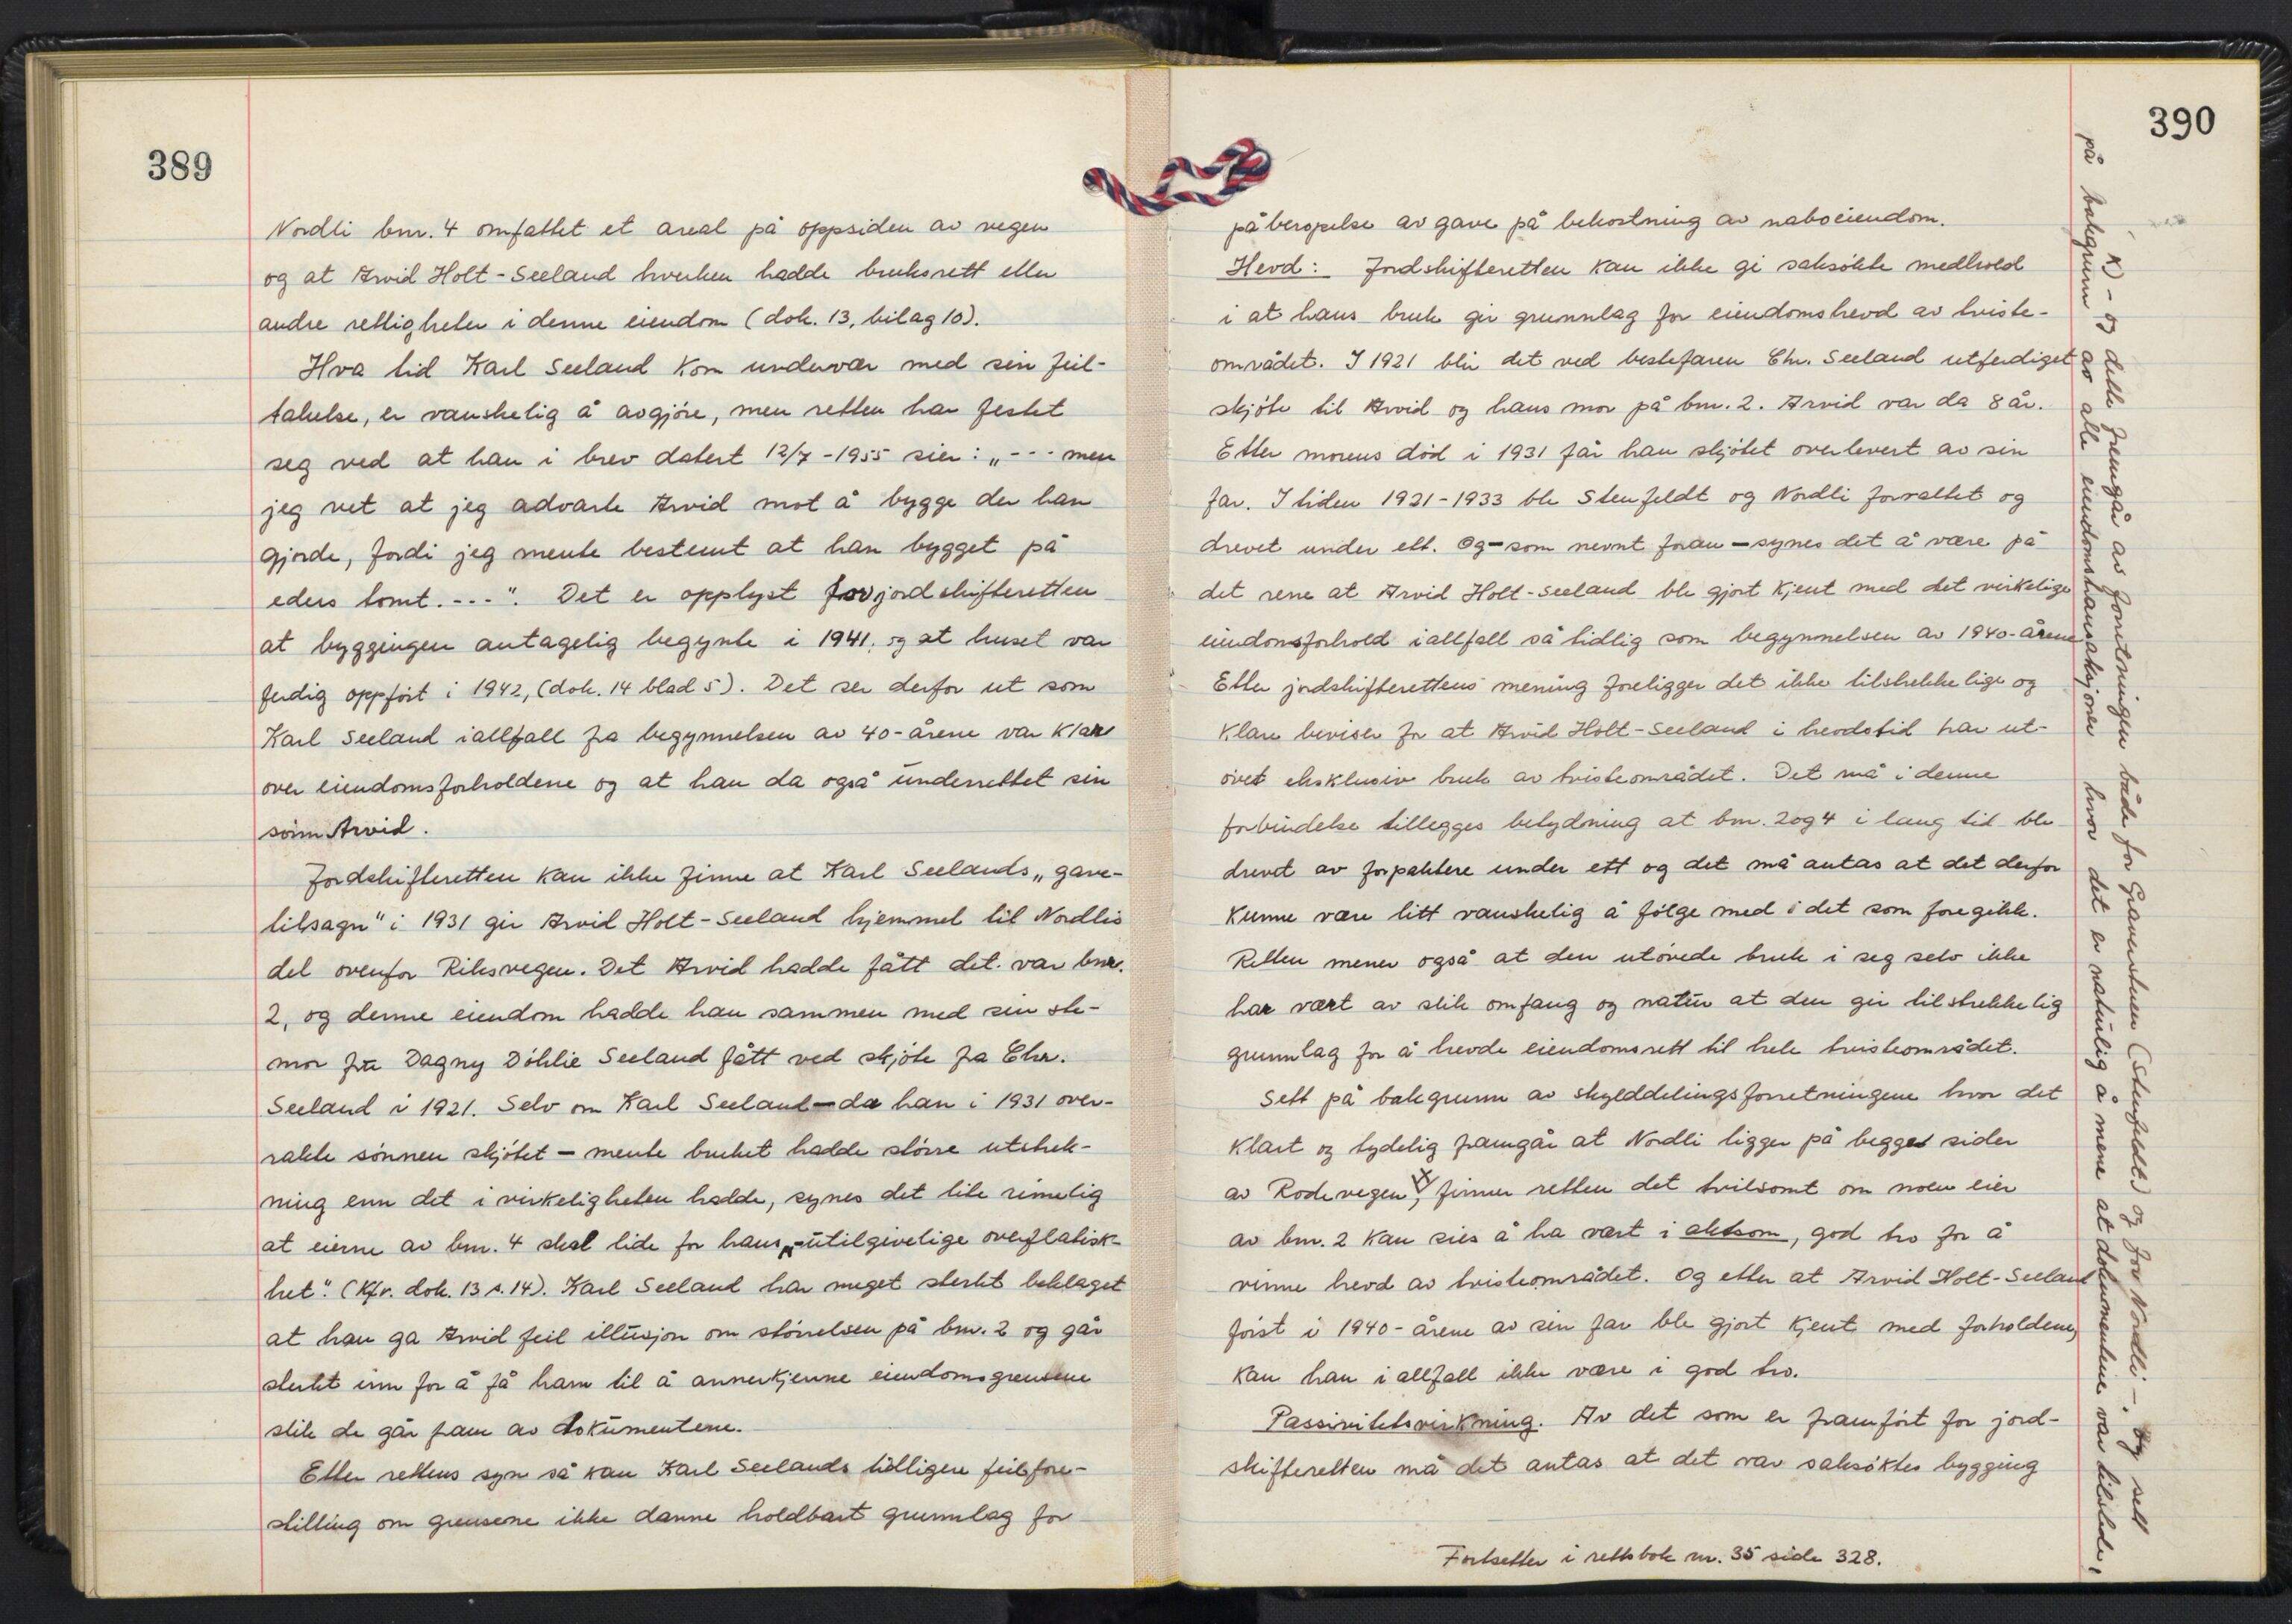 389
Nordli bnr. 4 omfattet et areal på oppsiden av vegen
og at Arvid Holt-Seeland hverken hadde bruksrett eller
andre rettigheter i denne eiendom (dok. 13, bilag 10).
Hva tid Karl Seeland kom undervær med sin feil-
takelse, er vanskelig å avgjöre, men retten har festet
seg ved at han i brev datert 12/7-1955 sier: „--- men
jeg vet at jeg advarte Arvid mot å bygge der han
gjorde, fordi jeg mente bestemt at han bygget på
eders tomt.---". Det er opplyst for jordskifteretten
at byggingen antagelig begynte i 1941, og at huset var
ferdig oppfört i 1942, (dok. 14 blad 5). Det ser derfor ut som
Karl Seeland iallfall fra begynnelsen av 40-årene var klar
over eiendomsforholdene og at han da også underrettet sin
sönn Arvid.
Jordskifteretten kan ikke finne at Karl Seelands „gave-
tilsagn" i 1931 gir Arvid Holt-Seeland hjemmel til Nordlis
del ovenfor Riksvegen. Det Arvid hadde fått det var bnr.
2, og denne eiendom hadde han sammen med sin ste-
mor fru Dagny Döhlie Seeland fått ved skjöte fra Chr.
Seeland i 1921. Selv om Karl Seeland – da han i 1931 over-
rakte sönnen skjötet – mente bruket hadde större utstrek-
ning enn det i virkeligheten hadde, synes det lite rimelig
at eierne av bnr. 4 skal lide for hans „utilgivelige overflatisk-
het". (Kfr. dok. 13 s. 14). Karl Seeland har meget sterkt beklaget
at han ga Arvid feil illusjon om störrelsen på bnr. 2 og går
sterkt inn for å få ham til å annerkjenne eiendomsgrensene
slik de går fram av dokumentene.
Etter rettens syn så kan Karl Seelands tidligere feilfore-
stilling om grensene ikke danne holdbart grunnlag for
390
påberopelse av gave på bekostning av naboeiendom.
Hevd: Jordskifteretten kan ikke gi saksökte medhold
i at hans bruk gir grunnlag for eiendomshevd av tviste-
området. I 1921 blir det ved bestefaren Chr. Seeland utferdiget
skjöte til Arvid og hans mor på bnr. 2. Arvid var da 8 år.
Etter morens död i 1931 får han skjötet overlevert av sin
far. I tiden 1921-1933 ble Stenfeldt og Nordli forvaltet og
drevet under ett. Og – som nevnt foran – synes det å være på
det rene at Arvid Holt-Seeland ble gjort kjent med det virkelige
eiendomsforhold iallfall så tidlig som begynnelsen av 1940-årene
Etter jordskifterettens mening foreligger det ikke tilstrekkelige og
klare beviser for at Arvid Holt-Seeland i hevdstid har ut-
övet eksklusiv bruk av tvisteområdet. Det må i denne
forbindelse tillegges betydning at bnr. 2 og 4 i lang tid ble
drevet av forpaktere under ett og det må antas at det derfor
kunne være litt vanskelig å fölge med i det som foregikk.
Retten mener også at den utövede bruk i seg selv ikke
har vært av slik omfang og natur at den gir tilstrekkelig
grunnlag for å hevde eiendomsrett til hele tvisteområdet.
Sett på bakgrunn av skylddelingsforretningene hvor det
klart og tydelig framgår at Nordli ligger på begge sider
av Rodevegen, x) finner retten det tvilsomt om noen eier
av bnr. 2 kan sies å ha vært i aktsom, god tro for å
vinne hevd av tvisteområdet. Og etter at Arvid Holt-Seeland
först i 1940-årene av sin far ble gjort kjent med forholdene,
kan han i allfall ikke være i god tro.
Passivitetsvirkning. Av det som er framfört for jord-
skifteretten må det antas at det var saksöktes bygging
Fortsetter i rettsbok nr. 35 side 328.
x) – og dette fremgår av forretningen både for Gravenstuen (Stenfeldt) og for Nordli –. Og sett
på bakgrunn av alle eiendomstransaksjoner hvor det er naturlig å mene at dokumentene var tilstede,